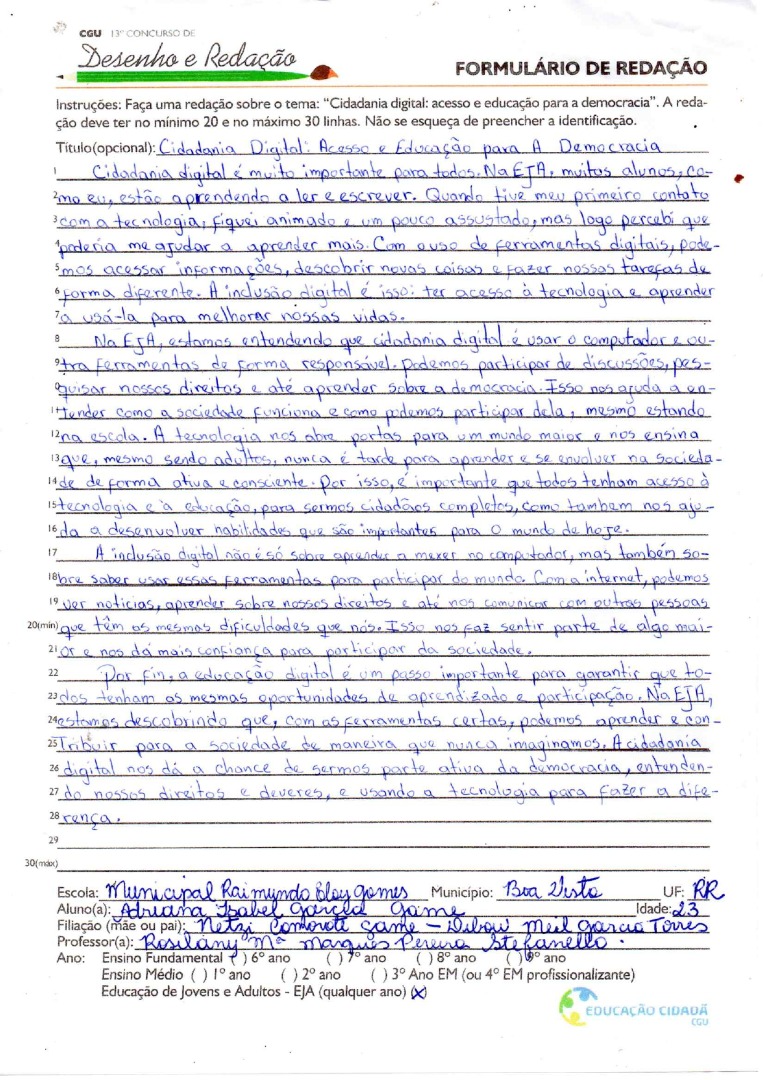 CGU 13º CONCURSO DE
Desenho e Redação
FORMULÁRIO DE REDAÇÃO
Instruções: Faça uma redação sobre o tema: “Cidadania digital: acesso e educação para a democracia”. A reda-
ção deve ter no mínimo 20 e no máximo 30 linhas. Não se esqueça de preencher a identificação.
Título(opcional): Cidadania Digital: Acesso e Educação para A Democracia
1 Cidadania digital é muito importante para todos. Na EJA, muitos alunos, co-
2 mo eu, estão aprendendo a ler e escrever. Quando tive meu primeiro contato
3 com a tecnologia, fiquei animado e um pouco assustado, mas logo percebi que
4 poderia me ajudar a aprender mais. Com o uso de ferramentas digitais, pode-
5 mos acessar informações, descobrir novas coisas e fazer nossas tarefas de
6 forma diferente. A inclusão digital é isso: ter acesso à tecnologia e aprender
7 a usá-la para melhorar nossas vidas.
8 Na EJA, estamos entendendo que cidadania digital é usar o computador e ou-
9 tra ferramentas de forma responsável. Podemos participar de discussões, pes-
quisar nossos direitos e até aprender sobre a democracia. Isso nos ajuda a en-
11 tender como a sociedade funciona e como podemos participar dela, mesmo estando
12 na escola. A tecnologia nos abre portas para um mundo maior e nos ensina
13 que, mesmo sendo adultos, nunca é tarde para aprender e se envolver na socieda-
14 de de forma ativa e consciente. Por isso, é importante que todos tenham acesso à
15 tecnologia e à educação, para sermos cidadãos completos, como tambem nos aju-
16 da a desenvolver habilidades que são importantes para o mundo de hoje.
17 A inclusão digital não é só sobre aprender a mexer no computador, mas também so-
18 bre saber usar essas ferramentas para participar do mundo. Com a internet, podemos
19 ver notícias, aprender sobre nossos direitos e até nos comunicar com outras pessoas
20(min) que têm as mesmas dificuldades que nós. Isso nos faz sentir parte de algo mai-
21 or e nos dá mais confiança para participar da sociedade.
22 Por fin, a educação digital é um passo importante para garantir que to-
23 dos tenham as mesmas oportunidades de aprendizado e participação. Na EJA,
24 estamos descobrindo que, com as ferramentas certas, podemos aprender e con-
25 Tribuir para a sociedade de maneira que nunca imaginamos. A cidadania
26 digital nos dá a chance de sermos parte ativa da democracia, entenden-
27 do nossos direitos e deveres, e usando a tecnologia para fazer a dife-
28 rença.
29
30(máx)
Escola: Municipal Raimundo Eloy Gomes Município: Boa Vista UF: RR
Aluno(a): Adriana Isabel García Game Idade: 23
Filiação (mãe ou pai): Netzi Game - Meil Garcia Torres
Professor(a): Rosilány Mª Marques Pereira Stefanello.
Ano: Ensino Fundamental ( ) 6º ano ( ) 7º ano ( ) 8º ano ( ) 9º ano
Ensino Médio ( ) 1º ano ( ) 2º ano ( ) 3º Ano EM (ou 4º EM profissionalizante)
Educação de Jovens e Adultos - EJA (qualquer ano) (x)
EDUCAÇÃO CIDADÃ
CGU